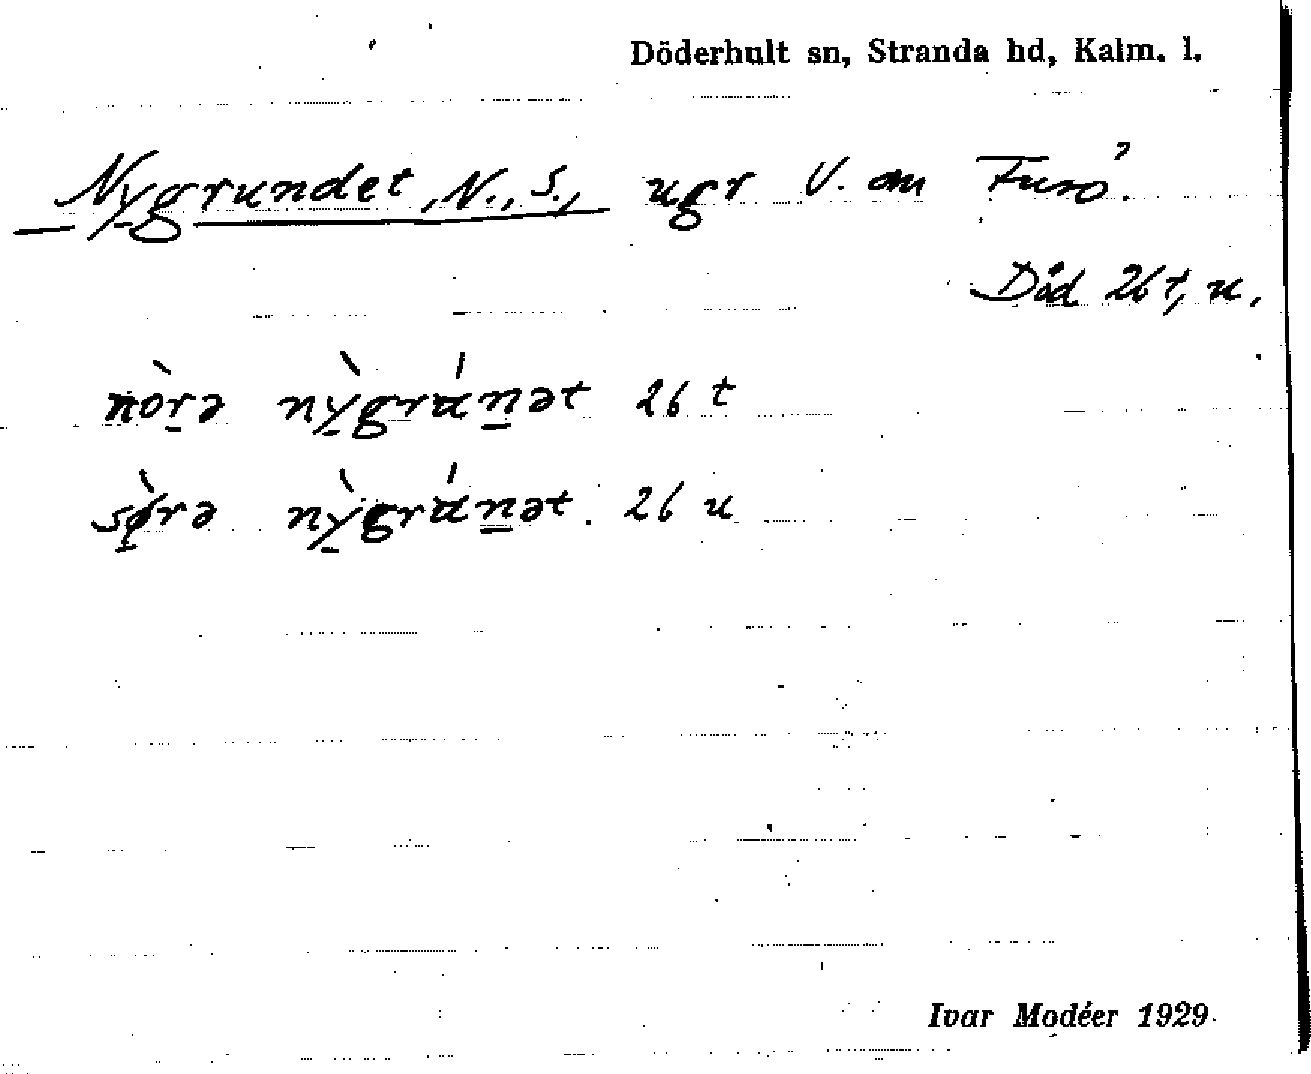 Döderhult sn, Stranda hd, Kalm. l.
Nygrundet, N., S., ugr V. om Furö.
Död 26 t, u.
nòrə nỳgrúnət 26 t
sø̀rə nỳgrúnət. 26 u
Ivar Modéer 1929